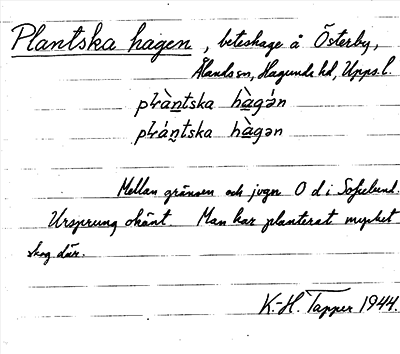 Plantska hagen, beteshage å Österby,
Ålands sn, Hagunda hd, Upps. l.
plà̱ntska hà̱gən
plántska hà̱gən
Mellan gränsen och jvgn O d i
Ursprung okänt. Man har planterat mycket
skog där.
K.-H. Tapper 1944.